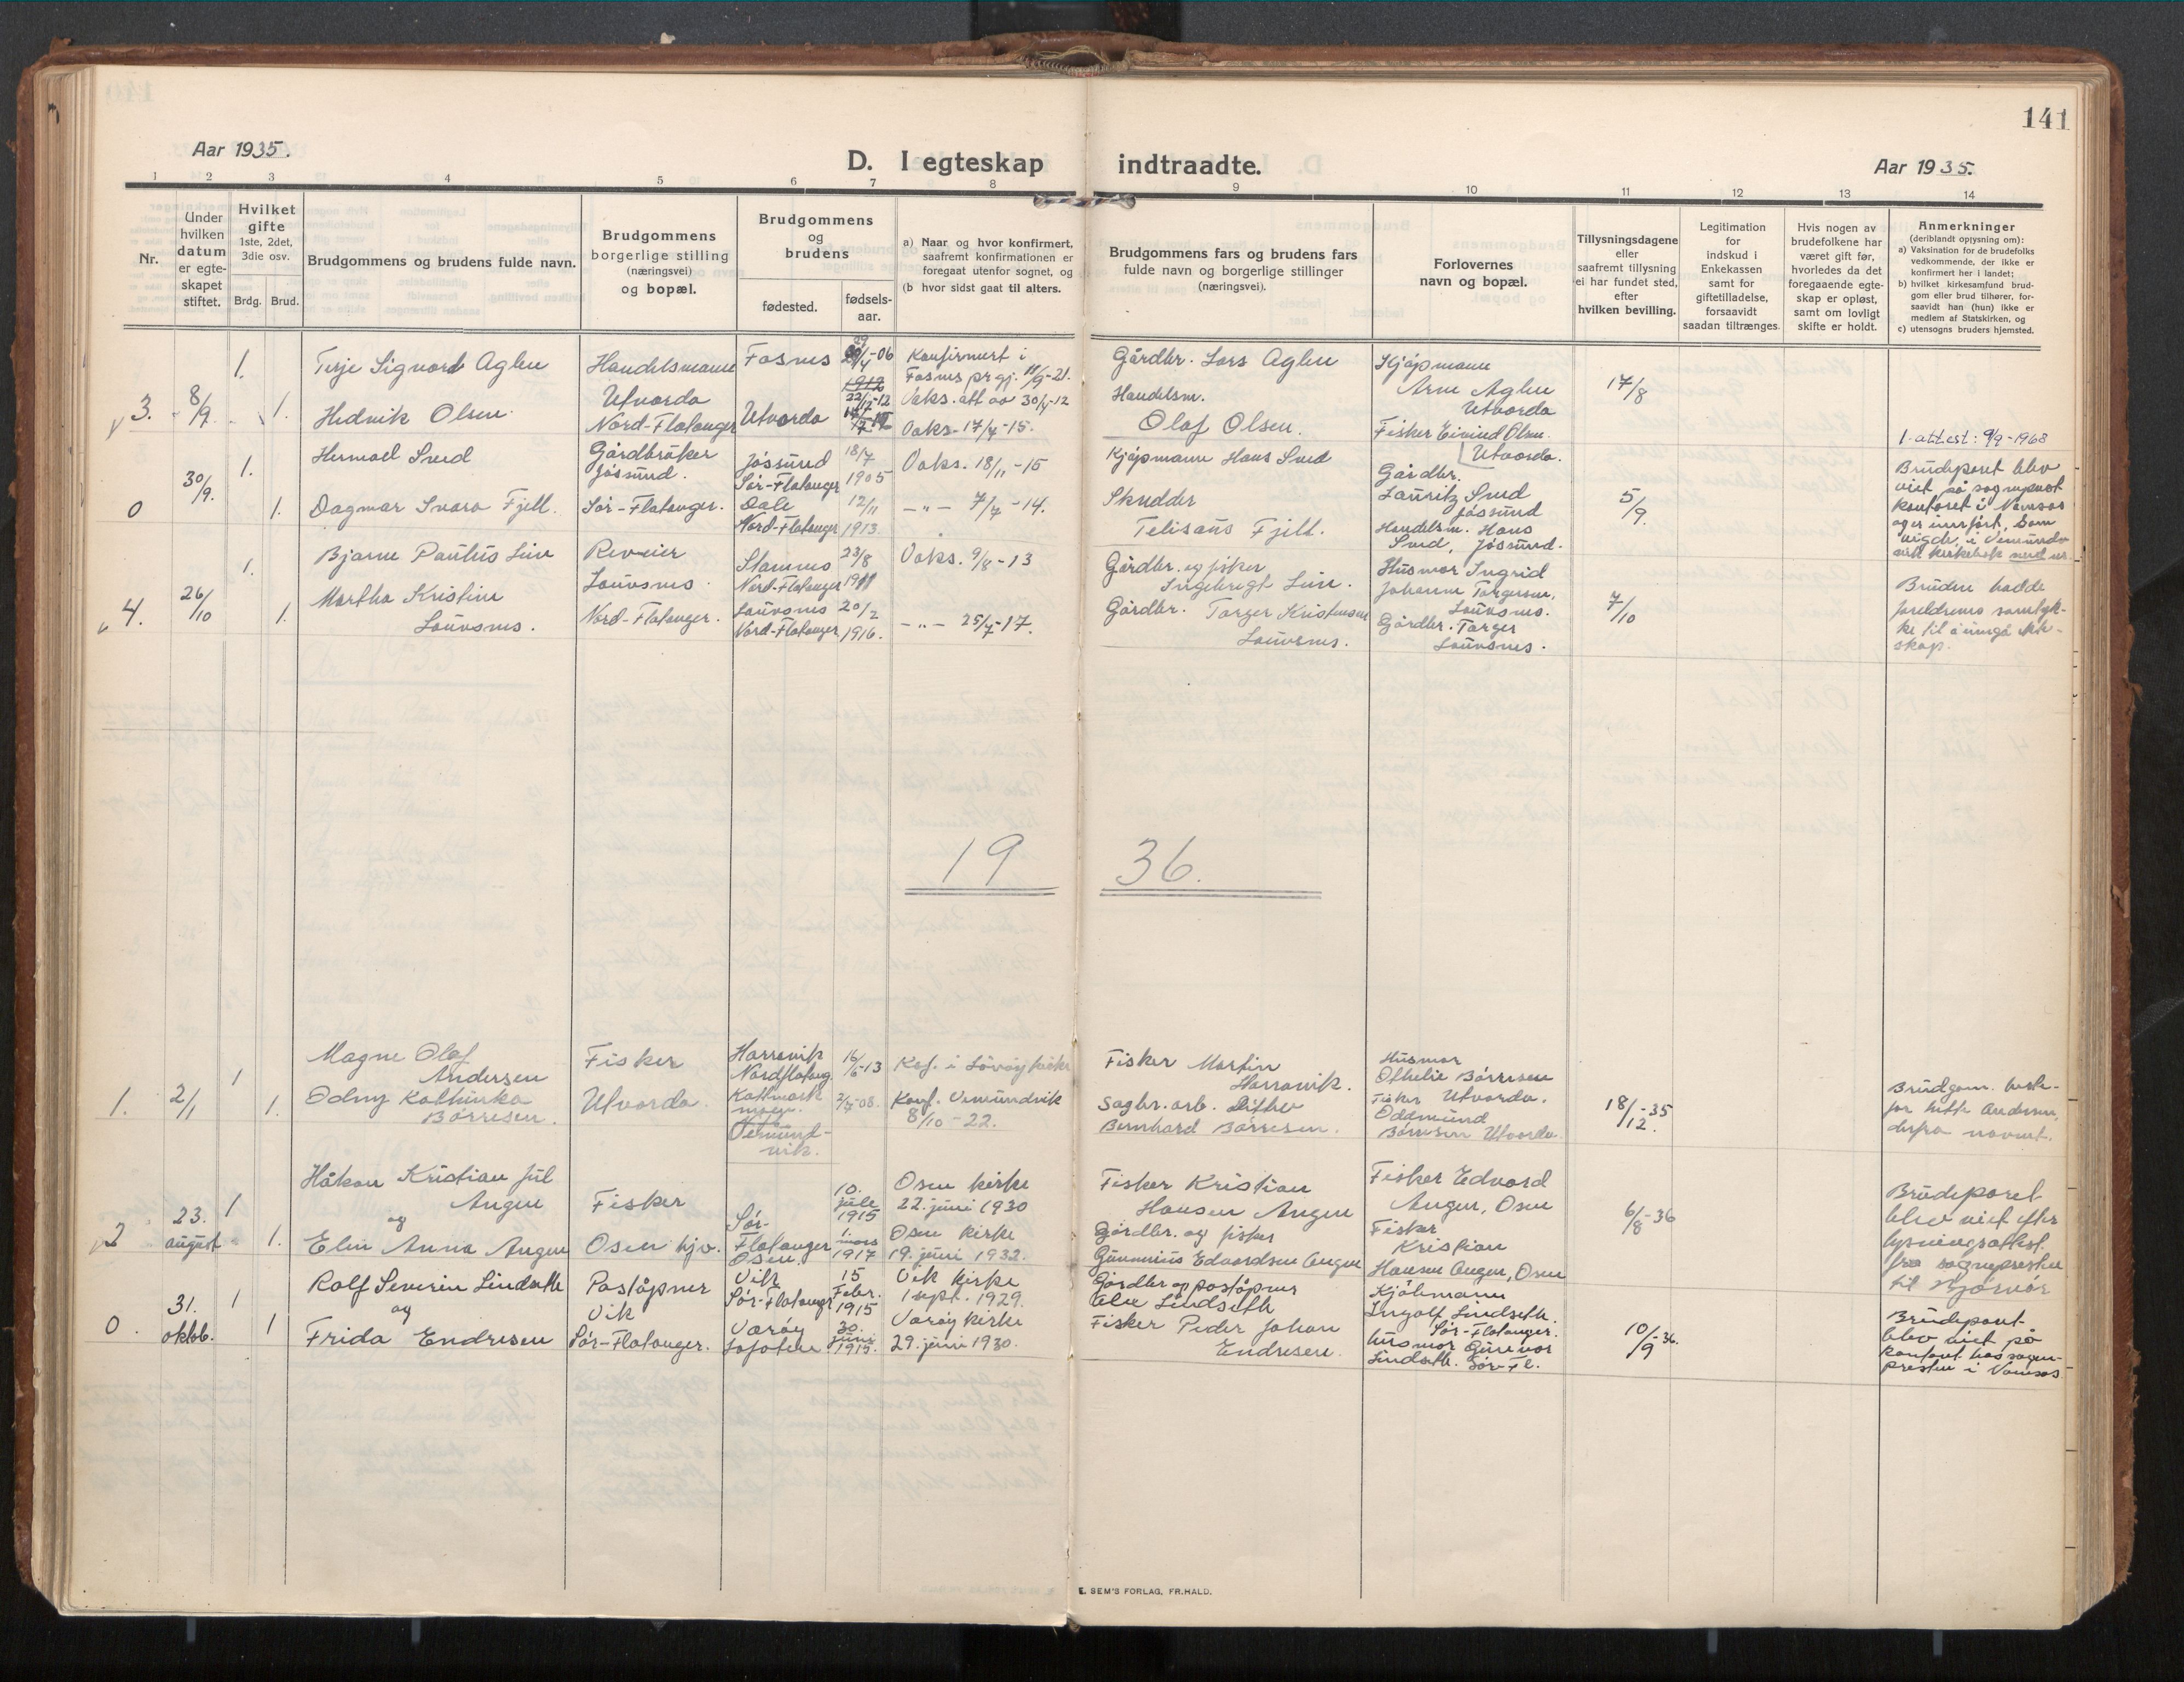 141
Aar 1935.
D. I egteskap indtraadte.
Aar 1935.
1 2 3 4 5 6 7 8 9 10 11 12 13 14
Nr.
Under
hvilken
datum
er egte-
skapet
stiftet.
Hvilket
gifte
1ste, 2det,
3die osv.
Brdg. Brud.
Brudgommens og brudens fulde navn.
Brudgommens
borgerlige stilling
(næringsvei)
og bopæl.
Brudgommens
og
brudens
fødested.
fødsels-
aar.
a) Naar og hvor konfirmert,
saafremt konfirmationen er
foregaat utenfor sognet, og
(b hvor sidst gaat til alters.
Brudgommens fars og brudens fars
fulde navn og borgerlige stillinger
(næringsvei).
Forlovernes
navn og bopæl.
Tillysningsdagene
eller
saafremt tillysning
ei har fundet sted,
efter
hvilken bevilling.
Legitimation
for
indskud i
Enkekassen
samt for
giftetilladelse,
forsaavidt
saadan tiltrænges.
Hvis nogen av
brudefolkene har
været gift før,
hvorledes da det
foregaaende egte-
skap er opløst,
samt om lovligt
skifte er holdt.
Anmerkninger
(deriblandt opysning om):
a) Vaksination for de brudefolks
vedkommende, der ikke er
konfirmert her i landet;
b) hvilket kirkesamfund brud-
gom eller brud tilhører, for-
saavidt han (hun) ikke er
medlem af Statskirken, og
c) utensogns bruders hjemsted.
3.
8/9
1.
1.
Terje Sigvard Aglen
Hedvik Olsen.
Handelsmann
Utvorda
Nord-Flatanger
Fosnes
Utvorda
29/4-06
1912
22/12-12
Konfirmert i
Fosnes pr gj. 11/9-21.
Vaks. att av 30/4-12
Vaks. 17/4-15.
Gårdbr. Lars Aglen
Handelsm.
Olaf Olsen.
Kjøpmann
Arne Aglen
Utvorda
Fisker Eivind Olsen.
Utvorda.
17/8
1. attest: 9/9-1968
0
30/9.
1.
1.
Hermod Sved
Dagmar Svara Fjell.
Gårdbruker
Jøssund.
Sør-Flatanger.
Jøssund
Sør-Flatanger
Dale
Nord-Flatanger
18/7
1905
12/11
1913.
Vaks. 18/11-15
-"- 7/7-14.
Kjøpmann Hans Sved
Skredder
Telisaus Fjell.
Gårdbr.
Lauritz Sved
Jøssund
Handelsm. Hans
Sved, Jøssund.
5/9.
Brudeparet blev
viet på sogneprest
kontoret i Namsos
og er innført, som
vigde, i Vemundv
vik kirkebok med nr.
4.
26/10
1.
1.
Bjarne Paulus Lien
Martha Kristine
Lauvsnes.
Reveier
Lauvsnes.
Nord-Flatanger.
Stamnes
Nord-Flatanger
Lauvsnes
Nord-Flatanger
23/8
1911
20/2
1916.
Vaks. 9/8-13
-"- 25/7-17.
Gårdbr. og fisker
Ingebregt Lien.
Gårdbr. Torger Kristensen
Lauvsnes.
Husmor Ingrid
Johanne Torgersen,
Lauvsnes.
Gårdbr. Torger
Lauvsnes.
7/10
Bruden hadde
foreldrenes samtyk-
ke til å inngå ekte-
skap.
19 36.
1.
2/1
1
1.
Magne Olaf
Andersen
Odny Kathinka
Børresen.
Fisker
Utvorda.
Harsvik
Nordflatang.
Vemund-
vik.
16/6-13
2/7-08.
Kof. i Løvøy kirke
Konf. Vemundvik
8/10-22.
Fisker Martin
Harsvik.
Sagbr. arb. Ditlev
Bernhard Børresen.
Husmor
Othelie Børresen
Fisker Utvorda.
Oddmund
Børresen Utvorda
18/12-35
Brudgom. beste-
far hette Andersen,
derfra navnet.
2
23.
august
1
1.
Håkon Kristian Jul
Angen
og
Elen Anna Angen
Fisker
Osen hjv.
Sør-
Flatanger
Osen.
10.
jule
1915
1.
mars
1917
Osen kirke
22. juni 1930
Osen kirke
19. juni 1932.
Fisker Kristian
Hansen Angen
Gårdbr. og fisker
Gunnerius Edvardsen Angen
Fisker Edvard
Angen, Osen
Fisker
Kristian
Hansen Angen, Osen
6/8-36
Brudeparet
blev viet efter
lysningsattest
fra sognepresten
til Bjørnør
0.
31.
oktob.
1
1
Rolf Severin Lindseth
og
Frida Endresen
Poståpner
Vik
Sør-Flatanger.
Vik
Sør-Flatanger
Værøy
Lofoten
15
Febr.
1915
30.
juni
1915.
Vik kirke
1 sept. 1929.
Værøy kirke
29. juni 1930.
Gårdbr og poståpner
Elen Lindseth
Fisker Peder Johan
Endresen.
Kjøbmann
Ingolf Lindseth.
Sør-Flatanger.
husmor Gunvor
Lindseth. Sør-Fl.
10/9-36.
Brudeparet
blev viet på
kontoret hos sogne-
presten i Namsos
E. SEM'S FORLAG, FR.HALD.